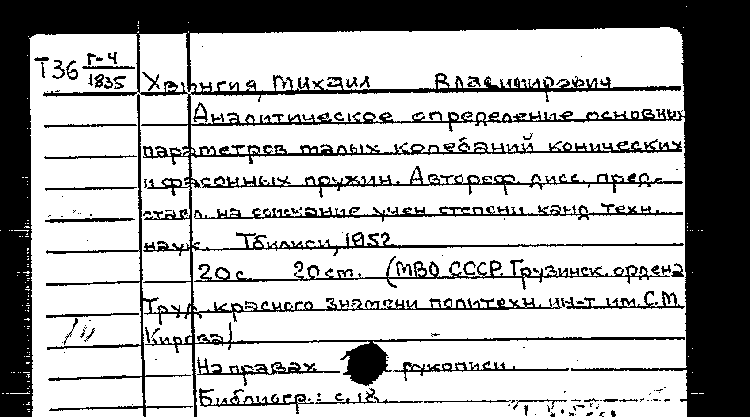 Т36 Г-4
1835
Хвингия, Михаил Владимирович
Аналитическое определение основных
параметров малых колебаний конических
и фасонных пружин. Автореф. дисс. пред-
ставл. на соискание учен степени канд. техн.
наук. Тбилиси, 1952
20 с. 20 см. (МВО СССР. Грузинск. ордена
Труд. красного знамени политехн. ин-т им. С.М.
Кирова)
На правах рукописи.
Библиогр.: с. 18.